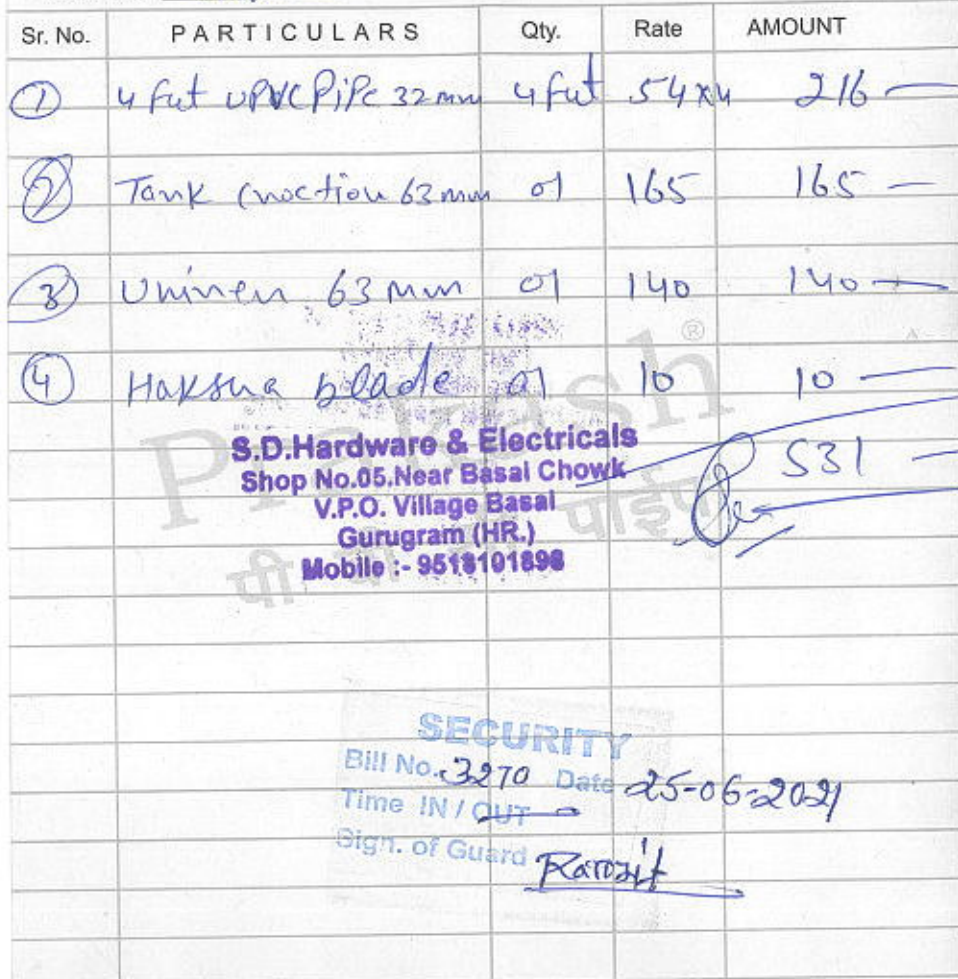 Sr. No. PARTICULARS Qty. Rate AMOUNT
1 4 fut UPVC PiPe 32 mm 4 fut 54x4 216
2 Tank Cnoction 63 mm 01 165 165
3 Uninen 63 mm 01 140 140
4 Haksua blade 01 10 10
531
Prakash ®
पी पाईप
S.D.Hardware & Electricals
Shop No.05.Near Basai Chowk
V.P.O. Village Basai
Gurugram (HR.)
Mobile :- 9518101898
SECURITY
Bill No. 3270 Date 25-06-2021
Time IN / OUT
Sign. of Guard